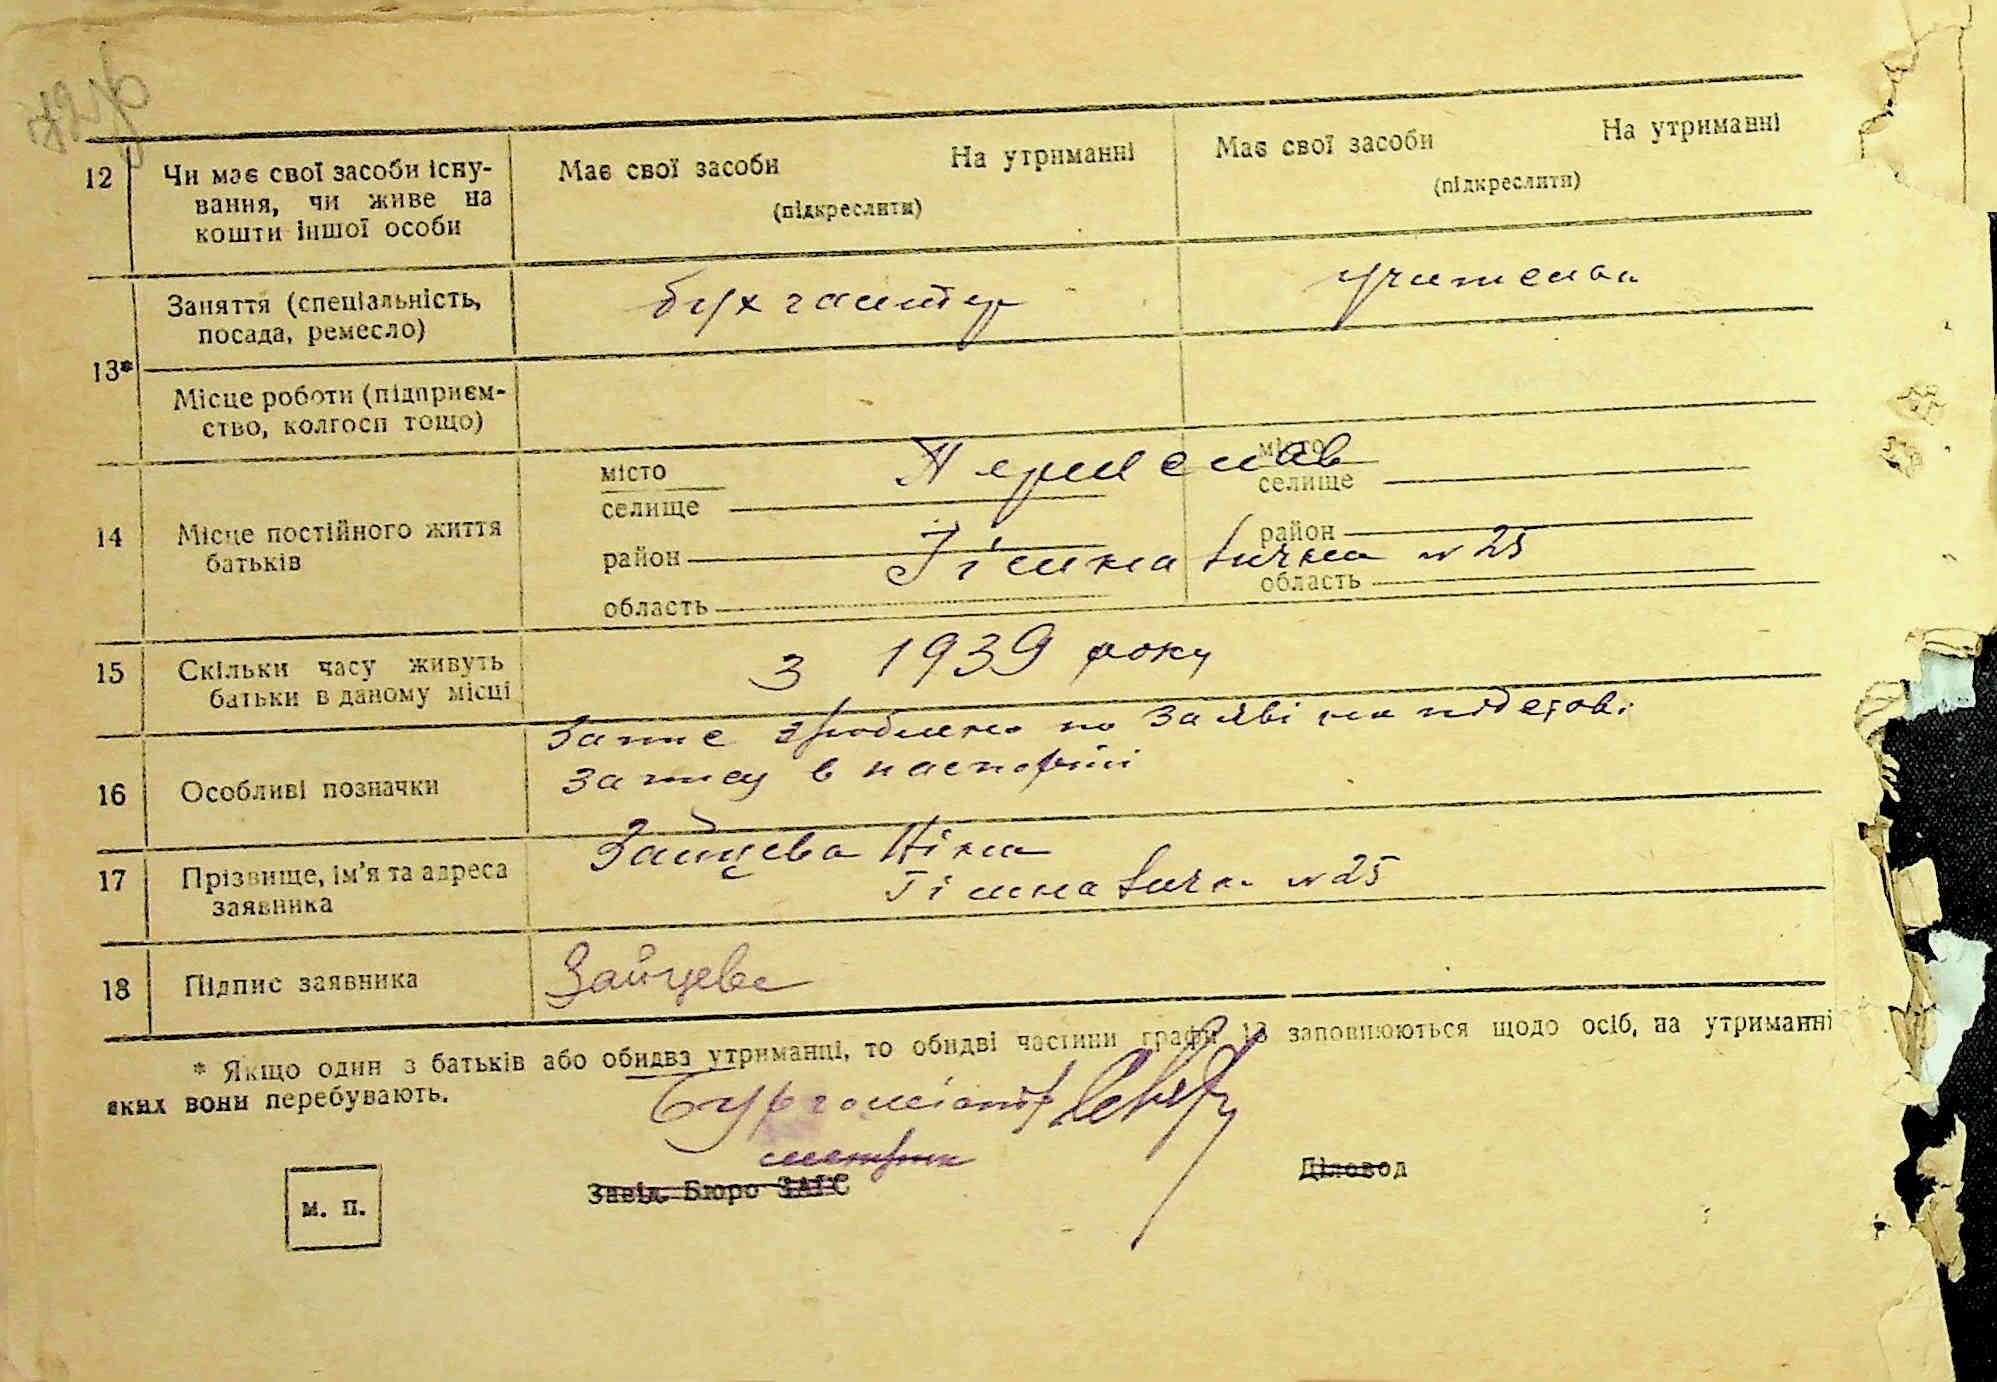 12 Чи має свої засоби існу-
вання, чи живе на
кошти іншої особи
Має свої засоби На утриманні
(підкреслити)
Має свої засоби На утриманні
(підкреслити)
13*
Заняття (спеціальність,
посада, ремесло)
бухгалтер
учителька
Місце роботи (підприєм-
ство, колгосп тощо)
14 Місце постійного життя
батьків
місто
селище
район
область
місто
селище
район
область
Гімназична № 25
15 Скільки часу живуть
батьки в даному місці
З 1939 року
16 Особливі позначки
Запис зроблено по заяві на підставі
запису в паспорті
17 Прізвище, ім'я та адреса
заявника
Зайцева Ніна
Гімназична № 25
18 Підпис заявника
Зайцева
* Якщо один з батьків або обидва утриманці, то обидві частини графи 13 заповнюються щодо осіб, на утриманні
яких вони перебувають.
Бургомістр
м. п.
Завід. Бюро ЗАГС
Діловод